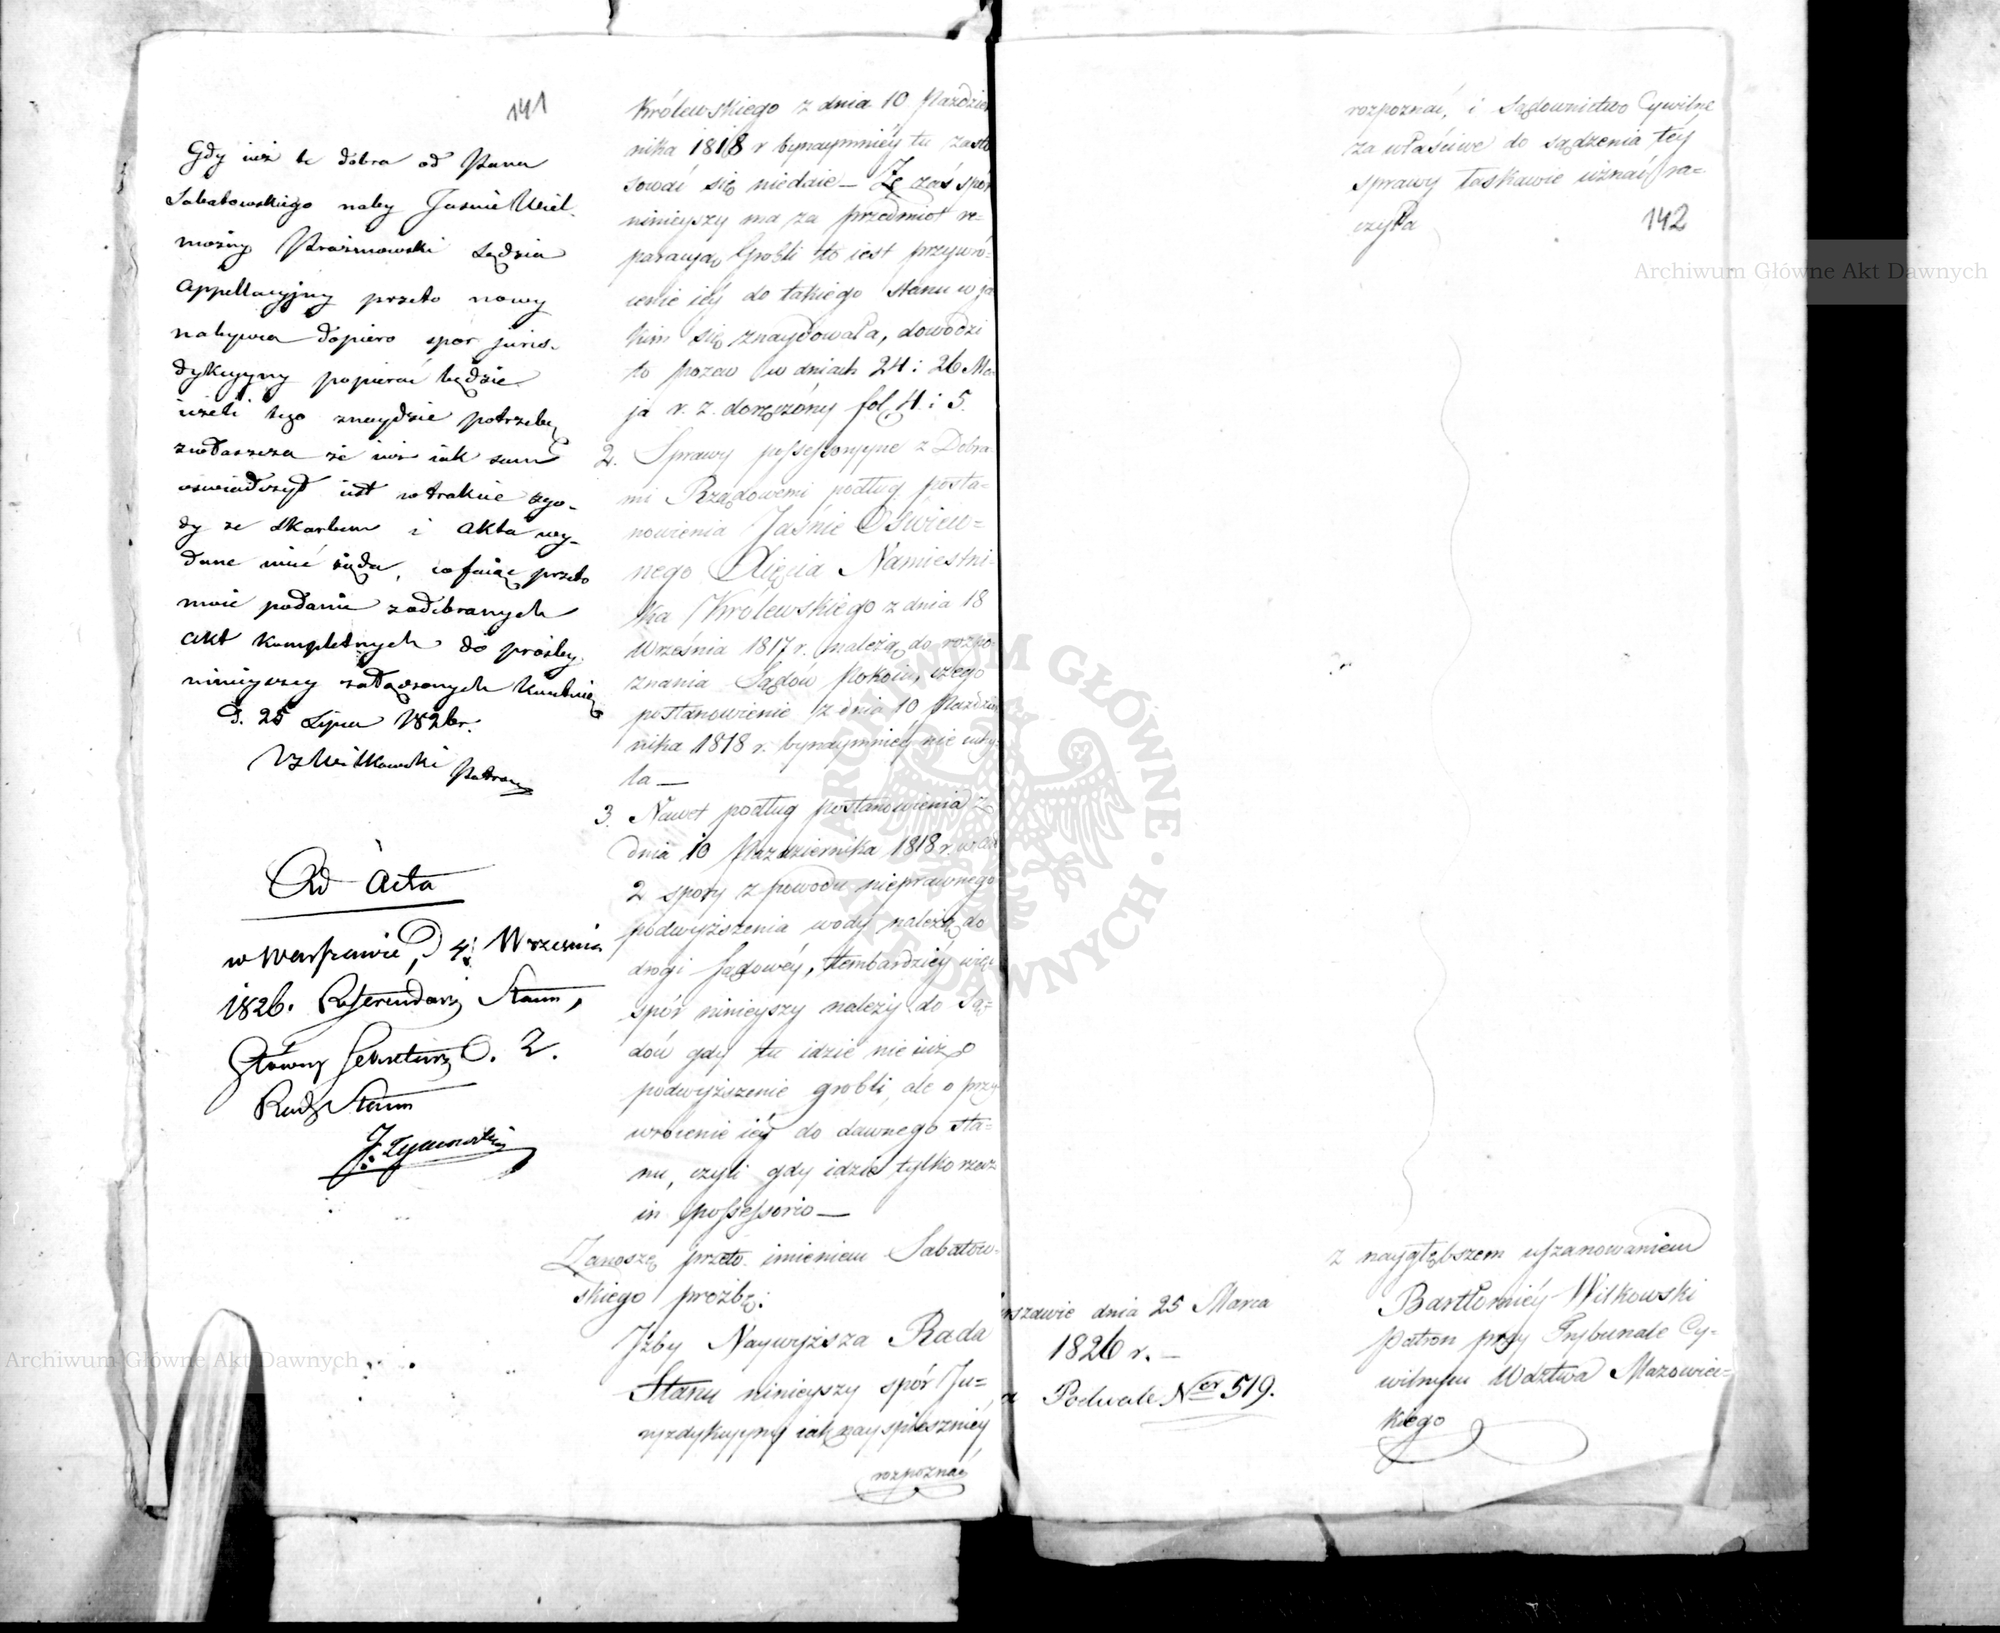 141
Gdy iuż te dobra od Pana
Sabatowskiego naby Jaśnie Wiel-
możny Prażmowski Sędzia
Appellacyjny przeto nowy
nabywca dopiero spór juris-
dykcyjny popierać będzie
ieżeli tego znaydzie potrzebę
zwłaszcza że iuż iak sam
oświadczył iest w trakcie zgo-
dy ze Skarbem i Akta wy-
dane mieć żąda, cofaiąc przeto
moie podanie z odebranych
akt kompletnych do prośby
ninieyszey załączonych kwituię
d. 25 Lipca 1826 r.
Witkowski Patron
Ad Acta
w Warszawie, d 4 Września
1826. Referendarz Stanu,
Główny Sekretarz
Rady Stanu
Królewskiego z dnia 10 Paździer
nika 1818 r bynaymniéy tu zasto
sować się niedaie — Że zaś spór
ninieyszy ma za przedmiot re-
paracyą Grobli to iest przywró-
cenie iéy do takiego stanu w ja
kim się znaydowała, dowodzi
to pozew w dniach 24 i 26 Ma
ja r. z. doręczóny fol. 4 i 5.
2. Sprawy possessoryyne z Dobra-
mi Rządowemi podług posta-
nowienia Jaśnie Oświeco-
nego Xięcia Namiestni-
ka Królewskiego z dnia 18
Września 1817 r. należą do rozpo
znania Sądów Pokoiu, czego
postanowienie z dnia 10 Paździer
nika 1818 r. bynaymniéy nie uchy-
la —
3. Nawet podług postanowienia z
dnia 10 Października 1818 r. w ad
2 spory z powodu nieprawnego
podwyższenia wody należą do
drogi Sądowéy, tembardziéy więc
spór ninieyszy należy do Są-
dów gdy tu idzie nie iuż o
podwyższenie grobli, ale o przy
wrócenie iéy do dawnego sta-
nu, czyli gdy idzie tylko rzecz
in possessorio —
Zanoszę przeto imieniem Sabatow-
skiego prożbę:
Iżby Naywyższa Rada
Stanu ninieyszy spór Ju-
ryzdykcyyny iak nayspieszniéy
rozpoznać
rozpoznać, i Sądownictwo Cywilne
za właściwe do sądzenia téy
sprawy łaskawie uznać ra-
czyła
142
z naygłębszem uszanowaniem
Bartłomiéy Witkowski
Patron przy Trybunale Cy-
wilnym Wdztwa Mazowiec-
kiego
rszawie dnia 25 Marca
1826 r. —
Podwale Ner 519.
Archiwum Główne Akt Dawnych
Archiwum Główne Akt Dawnych
ARCHIWUM GŁÓWNE AKT DAWNYCH